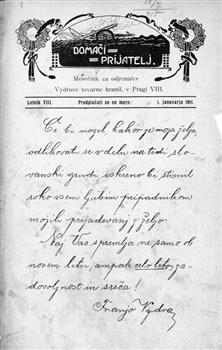 DOMAČI
PRIJATELJ.
Mesečnik za odjemalce
Vydrove tovarne hranil, v Pragi VIII.
Letnik VIII.
Predplačati se ne more.
1. januvarja 1911.
Če bi mogel, kakor je moja želja
odlikovati se v delu na tudi slo-
vanski iskreno bi stisnil
roko vsem ljubim pripadnikom
mojih prijadevanj z željo:
Naj Vas spremlja ne samo ob
novem letu, ampak celo leto za-
dovoljnost in sreča!
Franjo Vydra